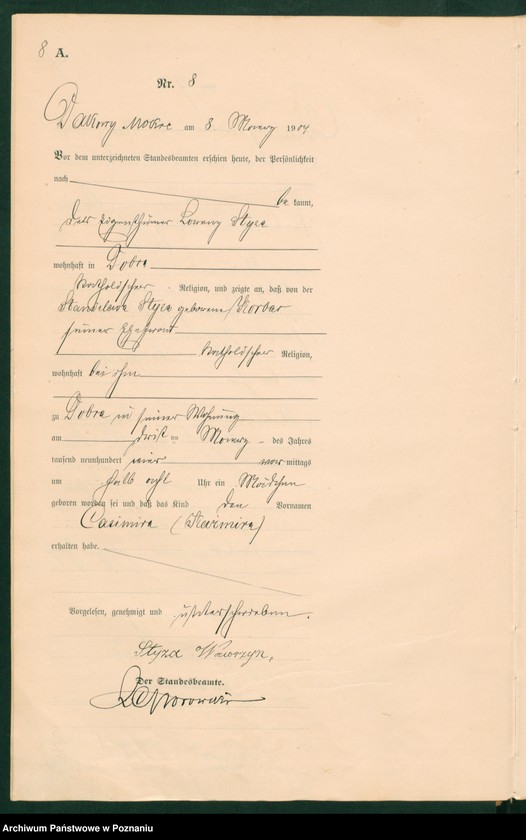 8 A.
Nr. 8
Dakowy Mokre am 8. 1904
Vor dem unterzeichneten Standesbeamten erschien heute, der Persönlichkeit
nach
be kannt,
der Eigenthümer Lorenz Styza
wohnhaft in Dobra
katholischer Religion, und zeigte an, daß von der
Stanislawa Styza geborene
seiner Ehefrau
katholischer Religion,
wohnhaft bei ihm
zu Dobra in seiner Wohnung
am des Jahres
tausend neunhundert vier vor mittags
um halb acht Uhr ein Mädchen
geboren worden sei und daß das Kind den Vornamen
Casimira (Kazimira)
erhalten habe.
Vorgelesen, genehmigt und unterschrieben.
Styza Wawrzyn.
Der Standesbeamte.
Archiwum Państwowe w Poznaniu